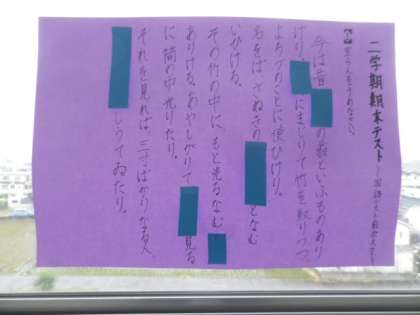 二学期期末テスト
空らんをうめなさい。
今は昔 の翁といふものあり
けり。 にまじりて竹を取りつつ、
よろづのことに使ひけり。
名をば、さぬきの となむ
いひける。
その竹の中に、もと光るなむ
ありける。あやしがりて 見る
に筒の中光りたり。
それを見れば、三寸ばかりなる人、
しうてゐたり。